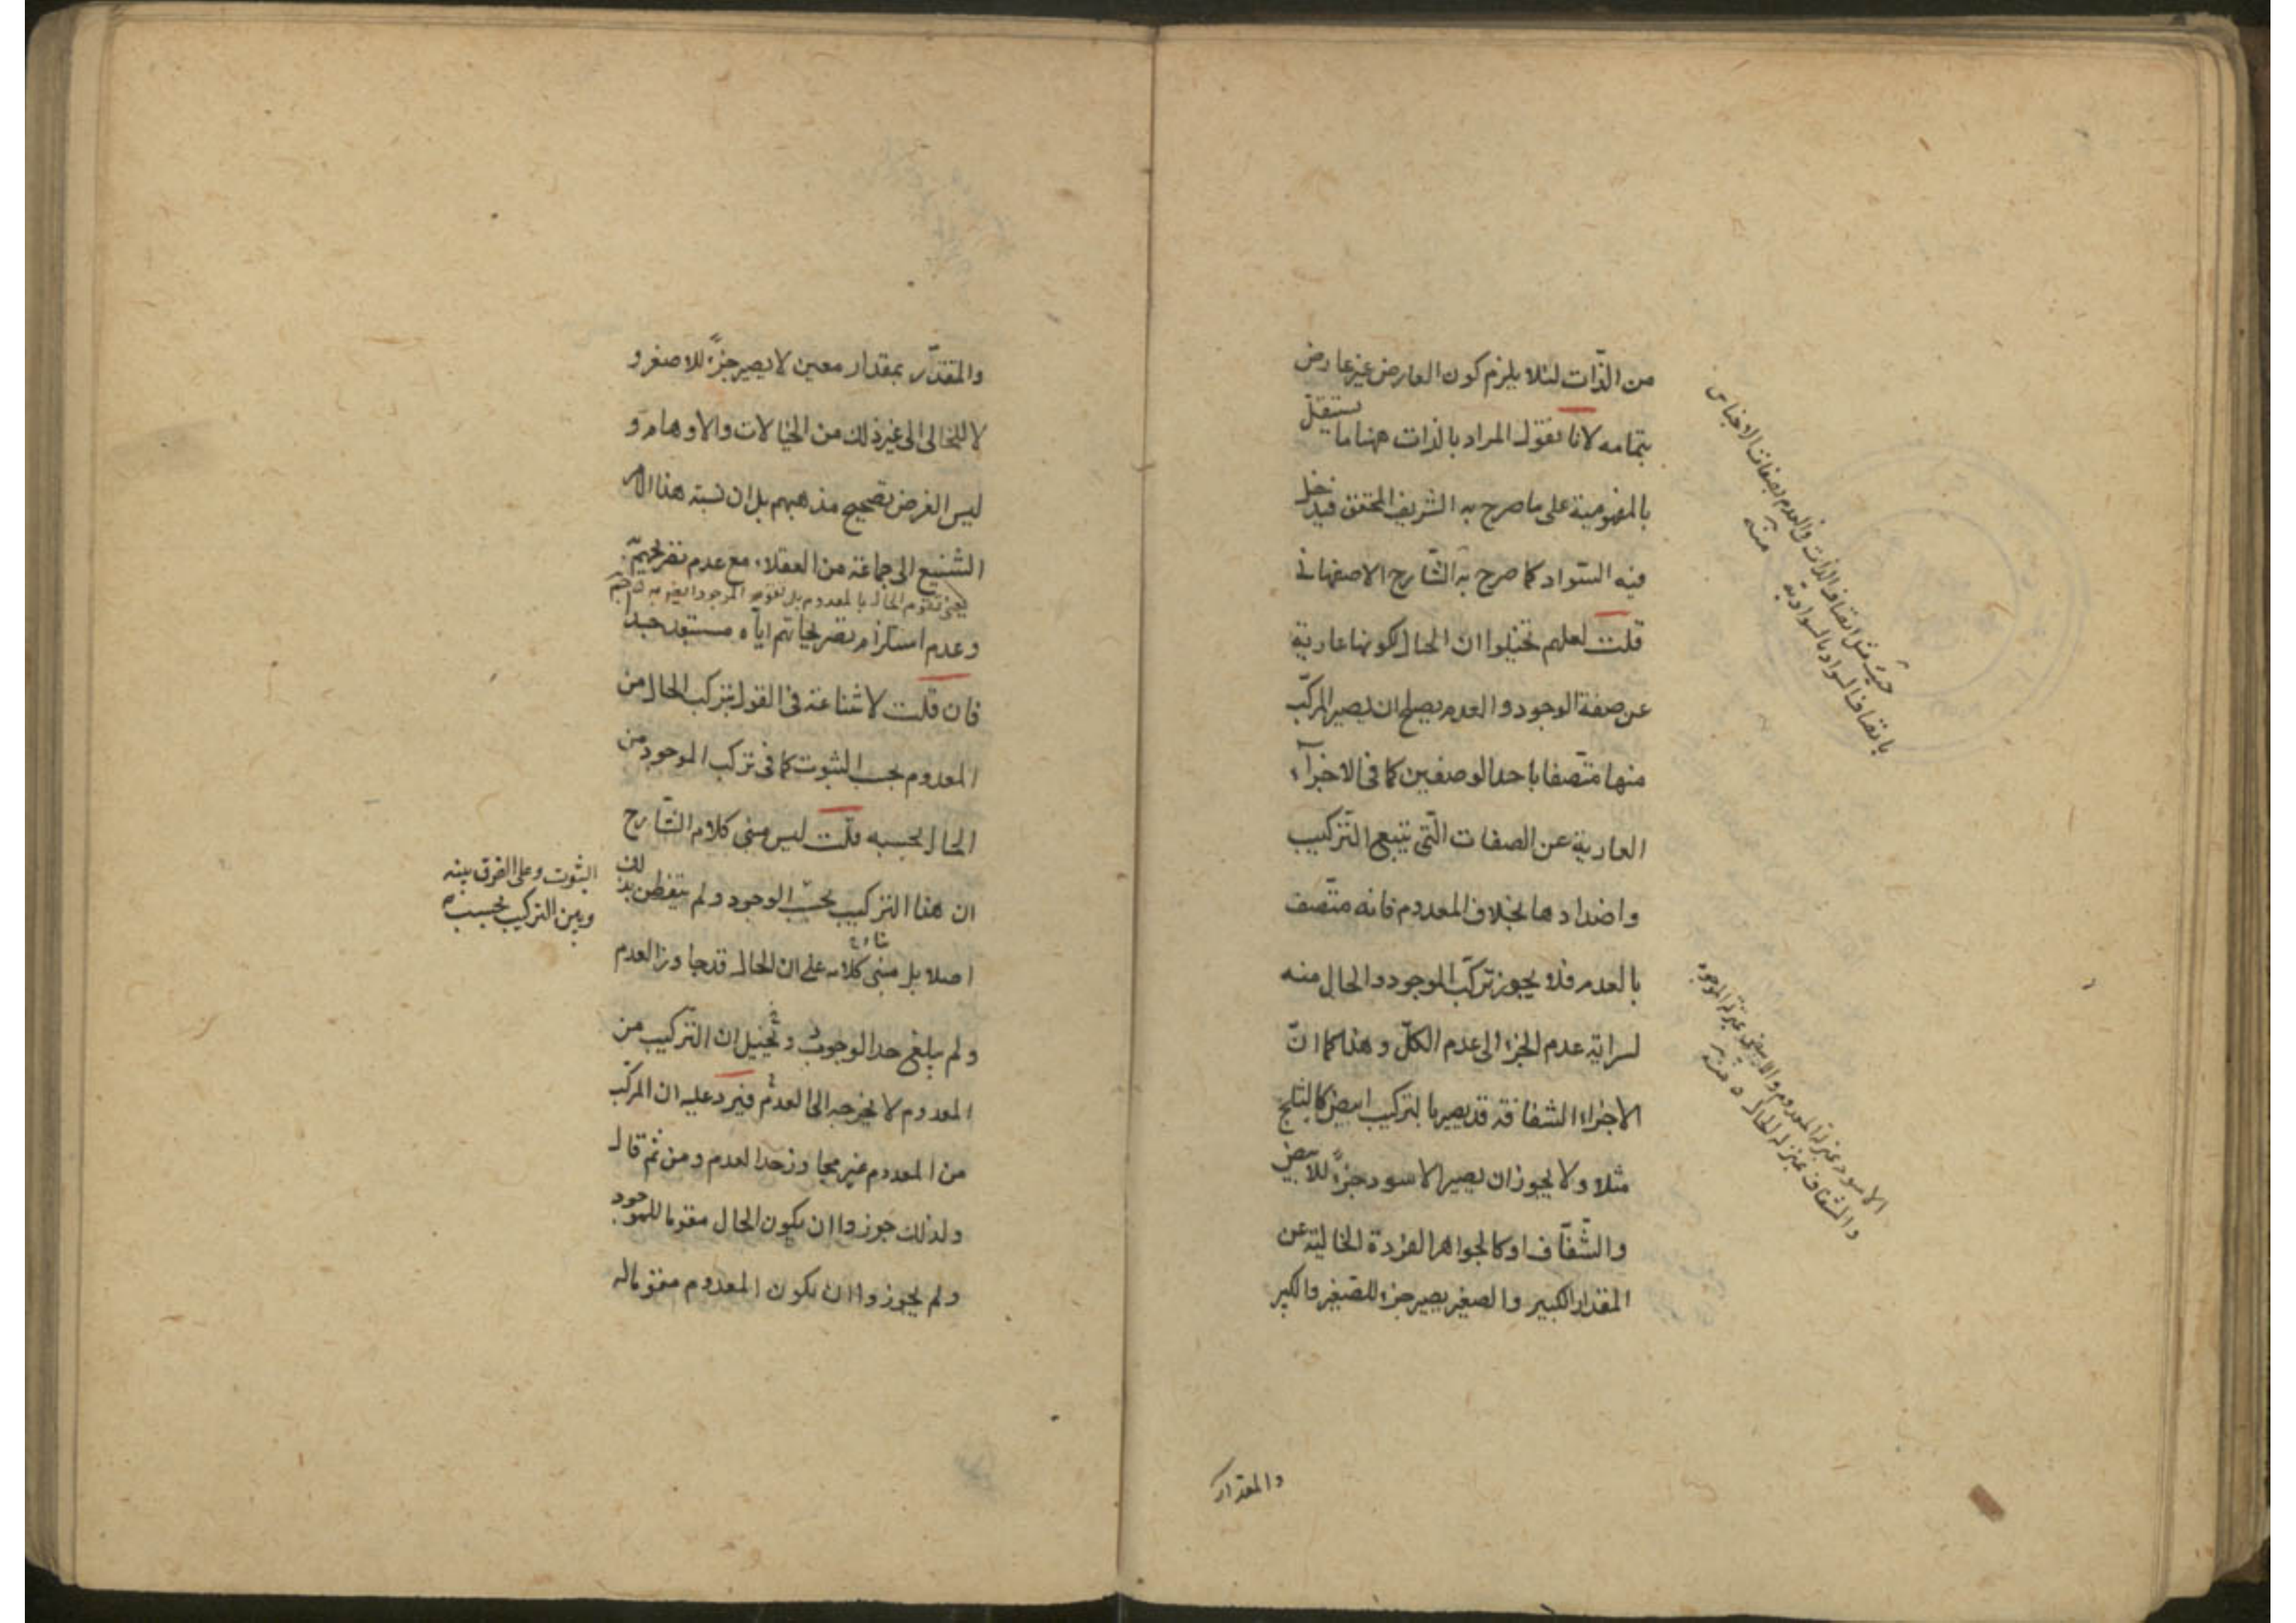 من الذّات لئلا يلزم كون العارض غير عارض
بتمامه لانا نقول المراد بالذات ههنا ما يستقلّ
بالمفهومية على ما صرح به الشريف المحقق فيدخل
فيه السّواد كما صرح به الشّارح الاصفهانى
قلت لعلهم تخيلوا ان الحال لكونها عارية
عن صفة الوجود والعدم يصلح ان يصير المركّب
منها متّصفا باحد الوصفين كما فى الاجزآء
العارية عن الصفات الّتى يتبع التّركيب
واضدادها بخلاف المعدوم فانه متّصف
بالعدم فلا يجوز تركّب الموجود والحال منه
لسراية عدم الجزء الى عدم الكلّ وهذا كما انّ
الاجزاء الشفافة قد يصير بالتركيب ابيض كالثلج
مثلا ولا يجوز ان يصير الاسود جزءً للابيض
والشّفّاف او كالجواهر الفردة الخالية عن
المقدار الكبير والصغير يصير جزء للصّغير والكبير
حيث مثل اتصاف الذات والعدم بصفات الاجناس
باتصاف السواد بالسوادية منه
الاسود بمنزلة المعدوم والابيض بمنزلة الموجود
والشفاف بمنزلة الحال منه
والمقدار
والمقدّر بمقدار معين لا يصير جزءً للاصغر و
لا للخالى الى غير ذلك من الخيالات والاوهام و
ليس الغرض تصحيح مذهبهم بل ان نسبة هذا الامر
الشنيع الى جماعة من العقلاء مع عدم تصريحهم
يعنى تقوم الحال بالمعدوم بل تقوم الموجود ايضا به
وعدم استلزام تصريحاتهم اياه مستبعد جدا
فان قلت لا شناعة فى القول بتركب الحال من
المعدوم بحسب الثبوت كما فى تركب الموجود من
الحال بحسبه قلت ليس مبنى كلام الشّارح
ان هذا التركيب بحسب الوجود ولم يتفطن بذلك
الثبوت وعلى الفرق بينه
وبين التركيب بحسبه
اصلا بل مبنى كلامه على ان الحال قد جاوز العدم
ولم يبلغ حد الوجود وتخيل ان التّركيب من
المعدوم لا يخرجه الى العدم فيرد عليه ان المركّب
من المعدوم غير مجاوز حد العدم ومن ثم قال
ولذلك جوزوا ان يكون الحال مقوما للموجود
ولم يجوزوا ان يكون المعدوم مقوما له